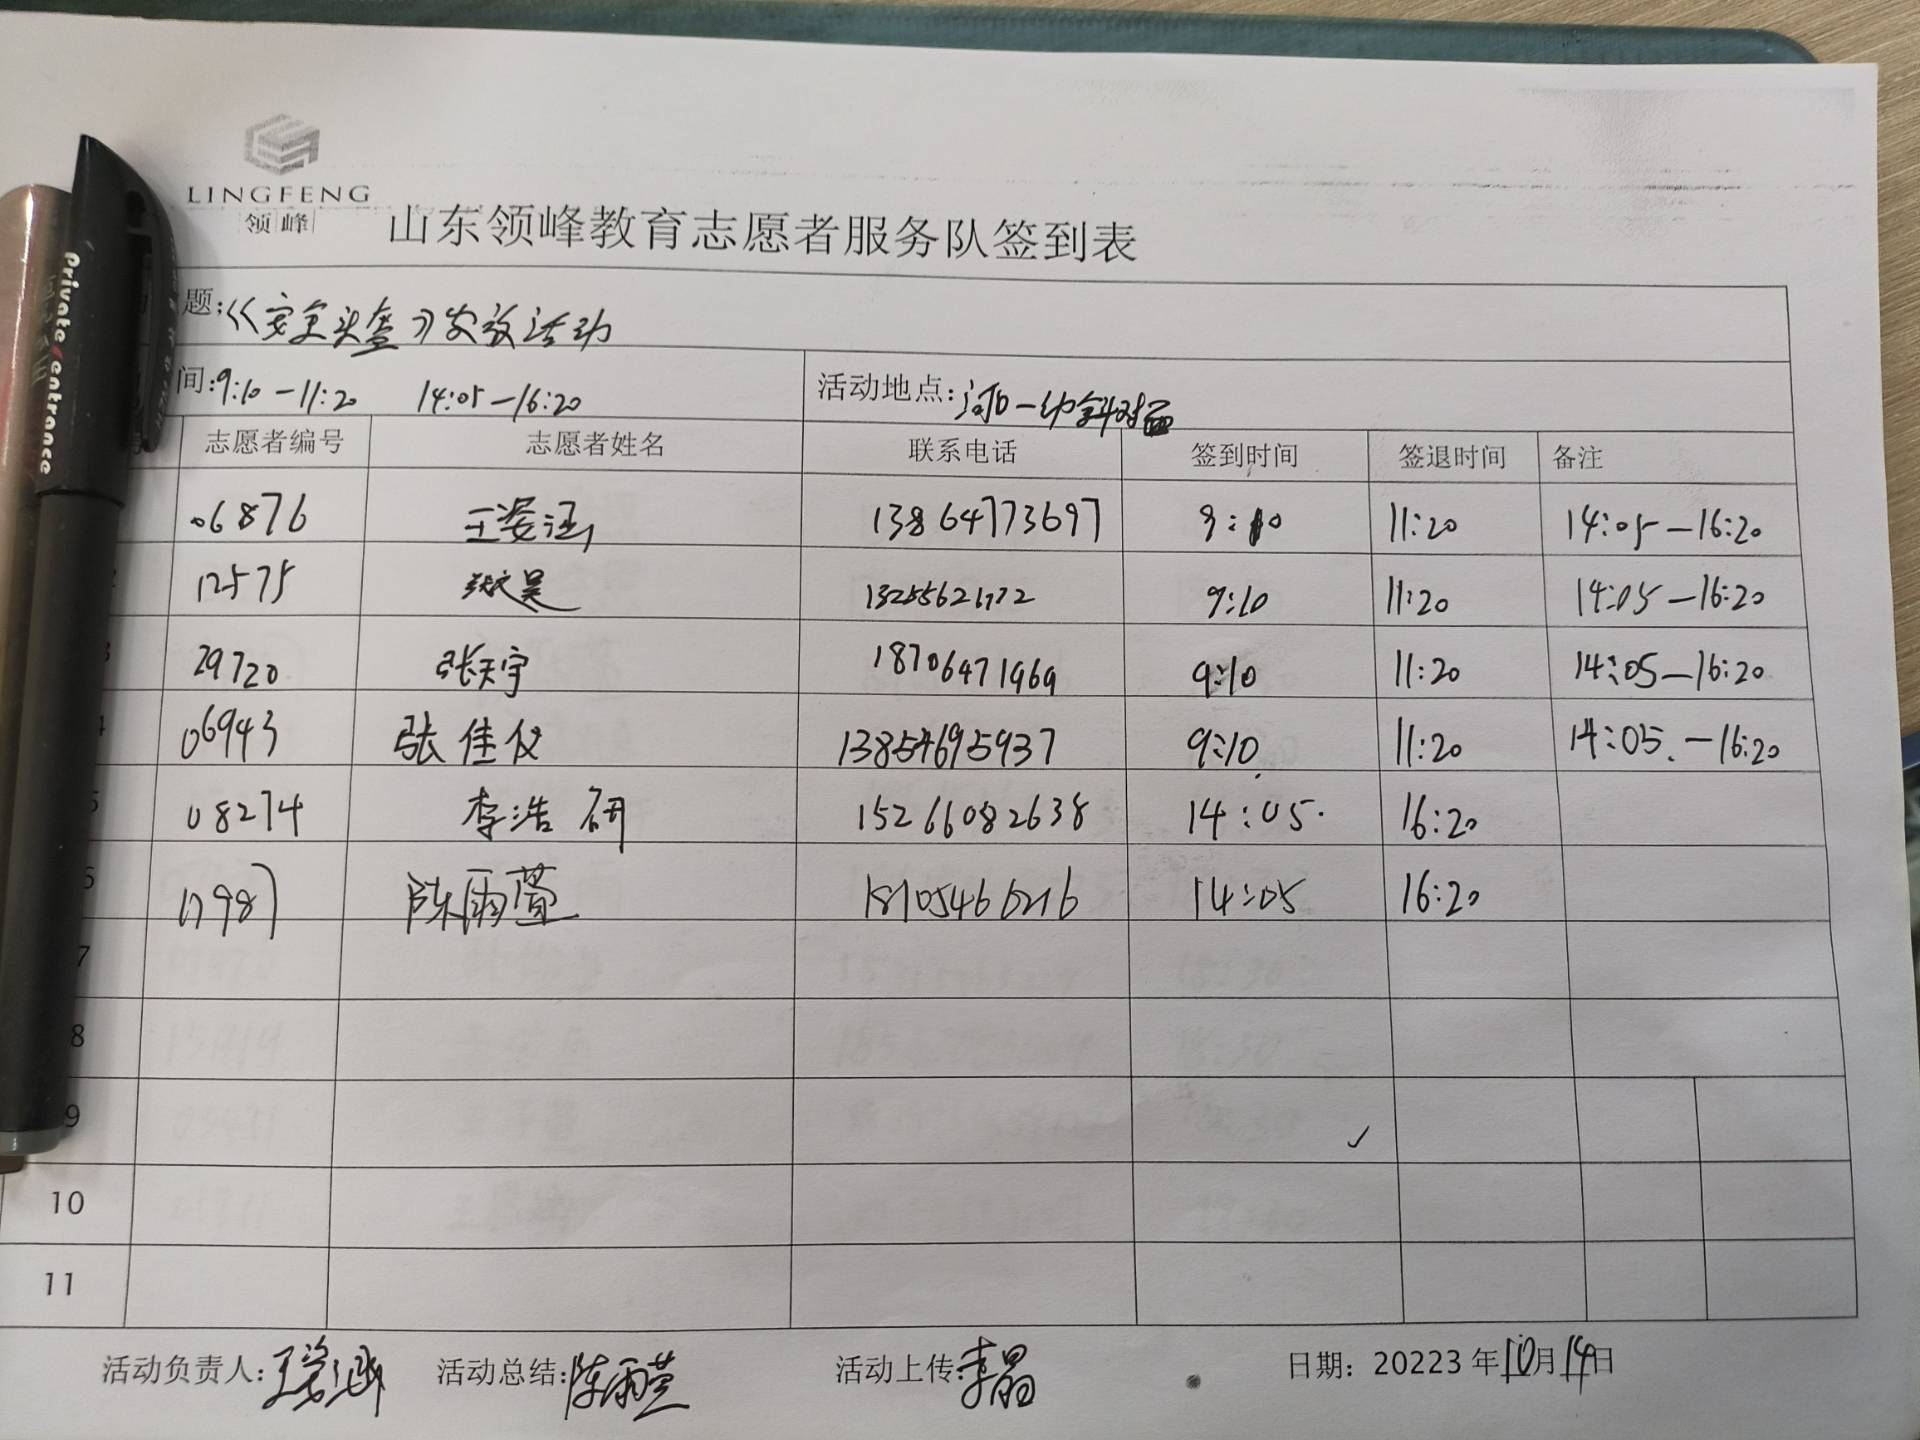 LINGFENG
领峰
山东领峰教育志愿者服务队签到表
题:《安全头盔》发放活动
间:9:10-11:20 14:05-16:20 活动地点:河口一幼斜对面
志愿者编号 志愿者姓名 联系电话 签到时间 签退时间 备注
06876 王姿涵 13864773697 9:10 11:20 14:05-16:20
2 12575 张文昊 9:10 11:20 14:05-16:20
3 29720 张天宇 18706471969 9:10 11:20 14:05-16:20
4 06943 张佳仪 13854695937 9:10 11:20 14:05.-16:20
5 08274 李浩研 15266082638 14:05. 16:20
6 17987 陈雨萱 14:05 16:20
7
8
9
10
11
活动负责人:王姿涵 活动总结:陈雨萱 活动上传:李晶 日期: 20223年10月14日
Private entrance